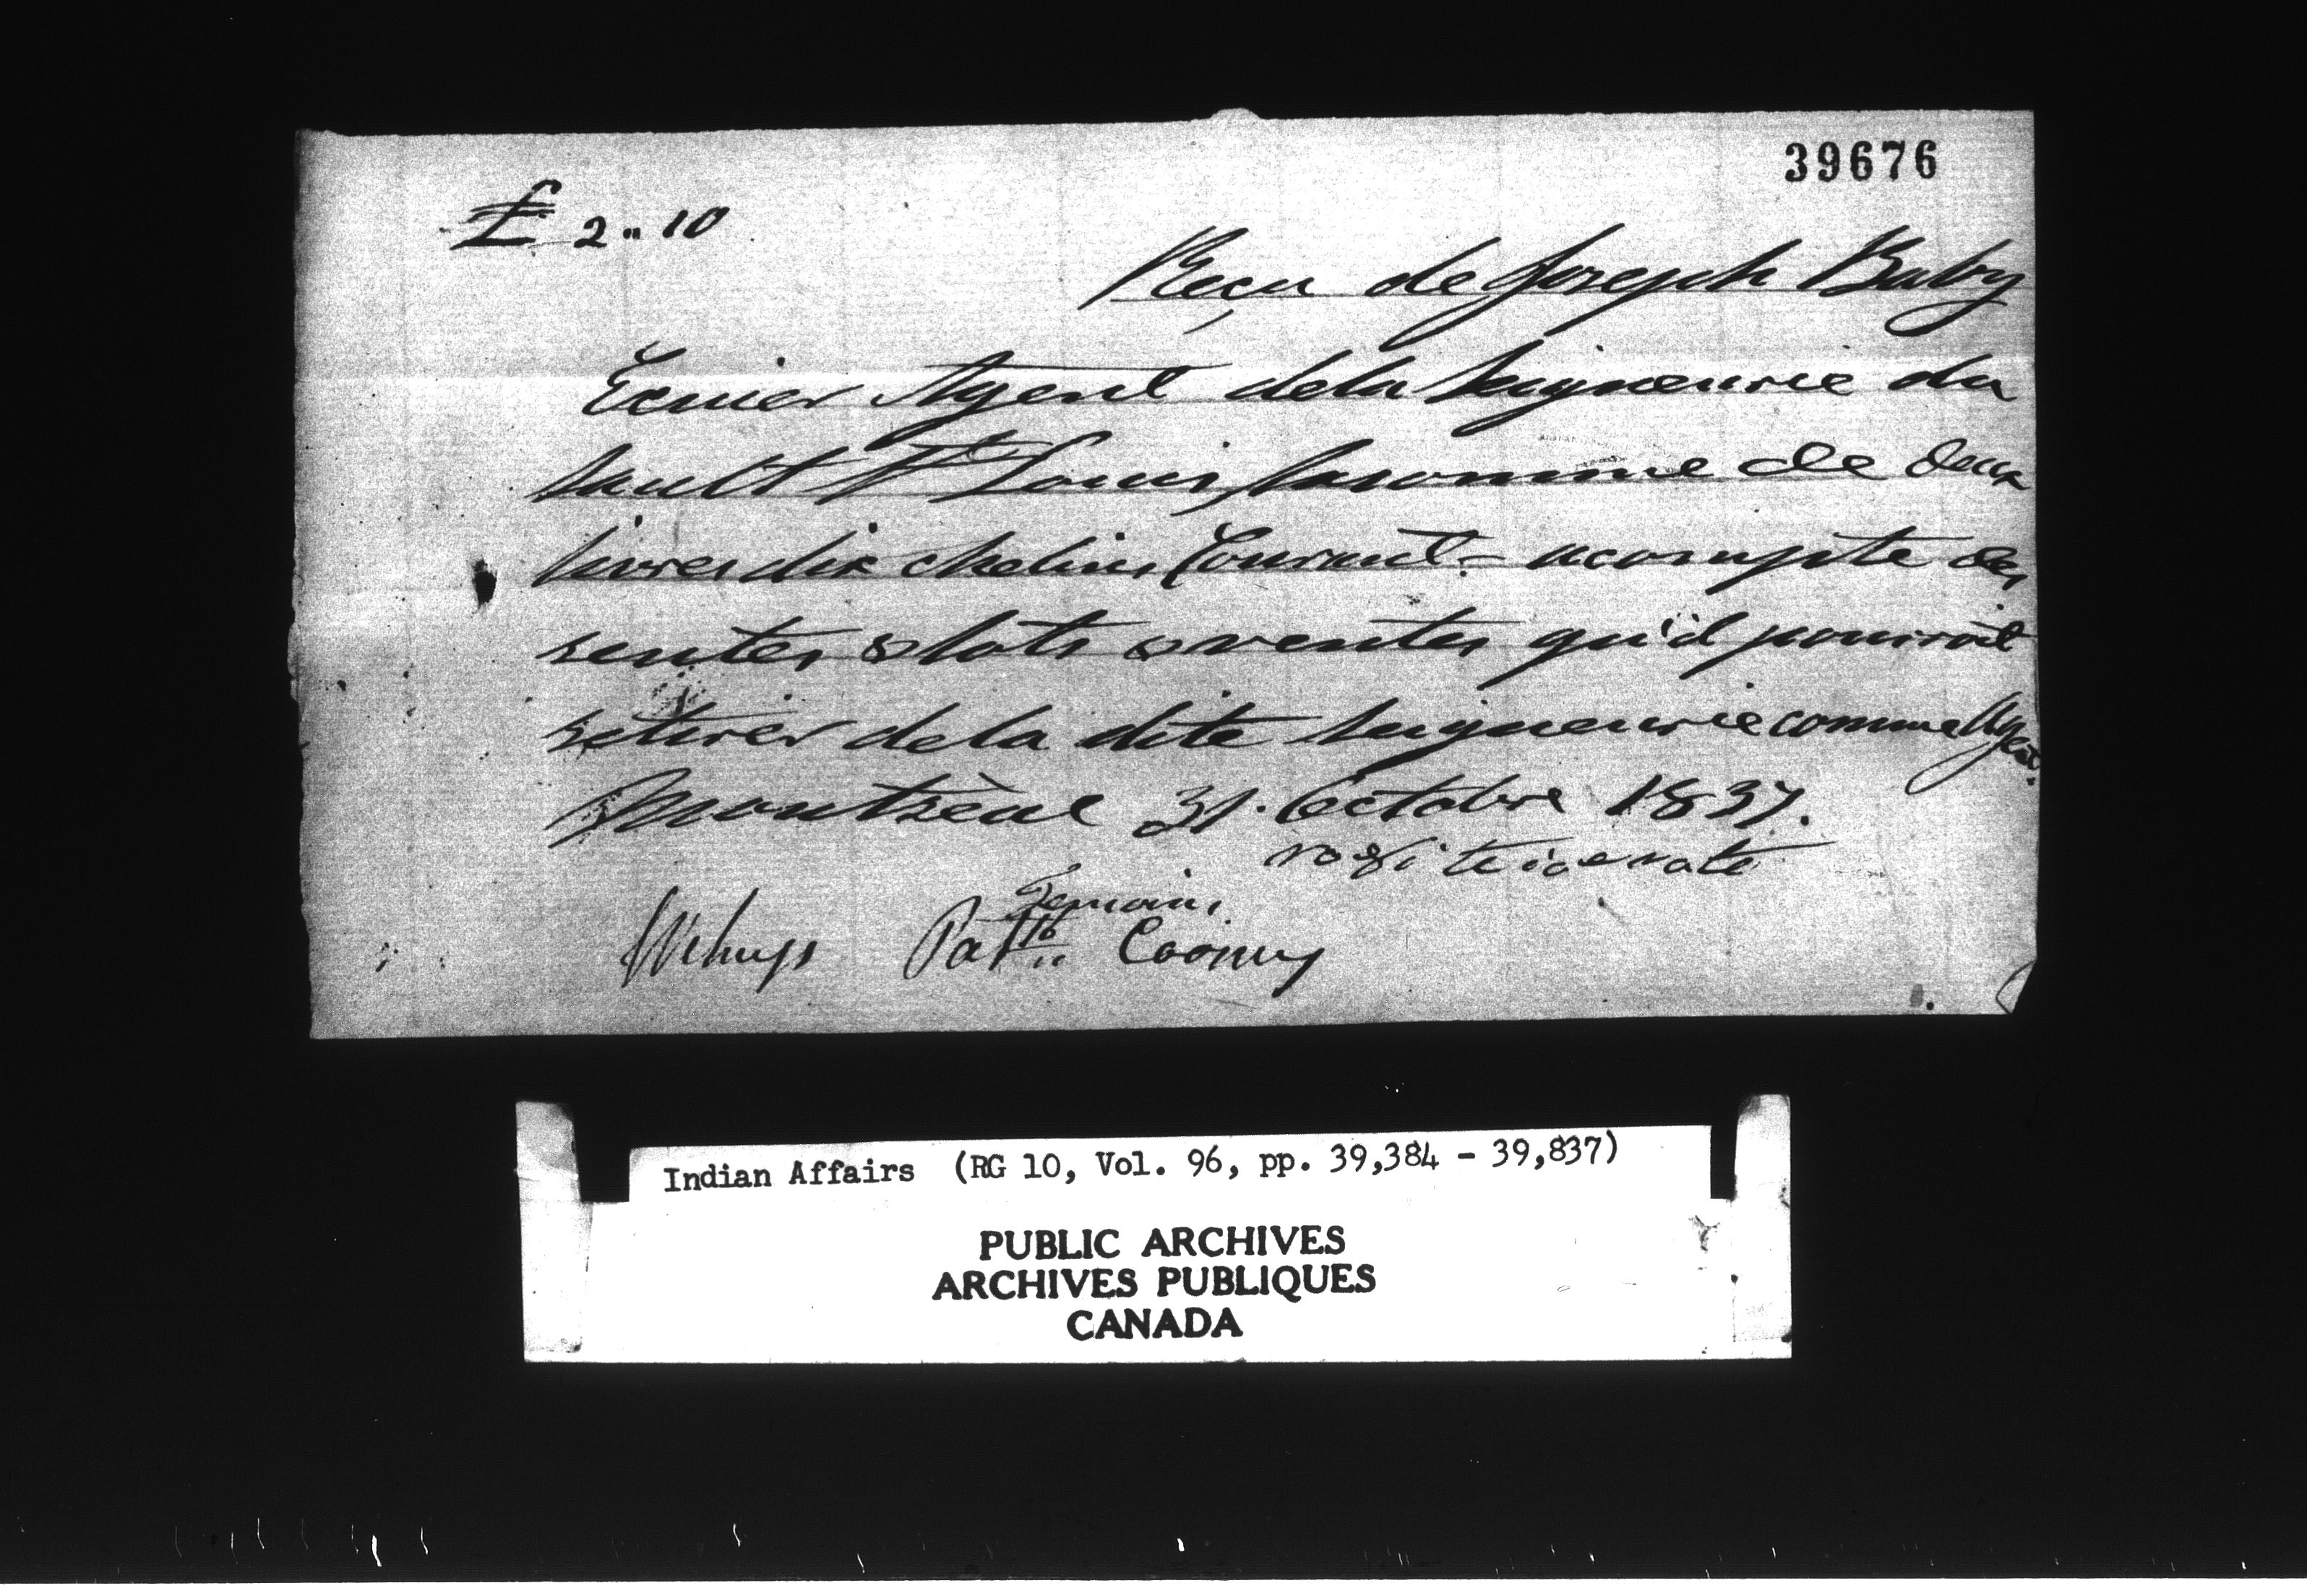 39676
£ 2 " 10
Reçu de Joseph Baby
Ecuier Agent dela Seigneurie du
Sault St Louis la somme de deux
livres dix chelins Courant - acompte des
rentes & lots & ventes qu'il pourroit
retirer dela dite Seigneurie comme Agent.
Montréal 31. Octobre 1837.
Temoins
Patk Cooney
Indian Affairs (RG 10, Vol. 96, pp. 39,384 - 39,837)
PUBLIC ARCHIVES
ARCHIVES PUBLIQUES
CANADA